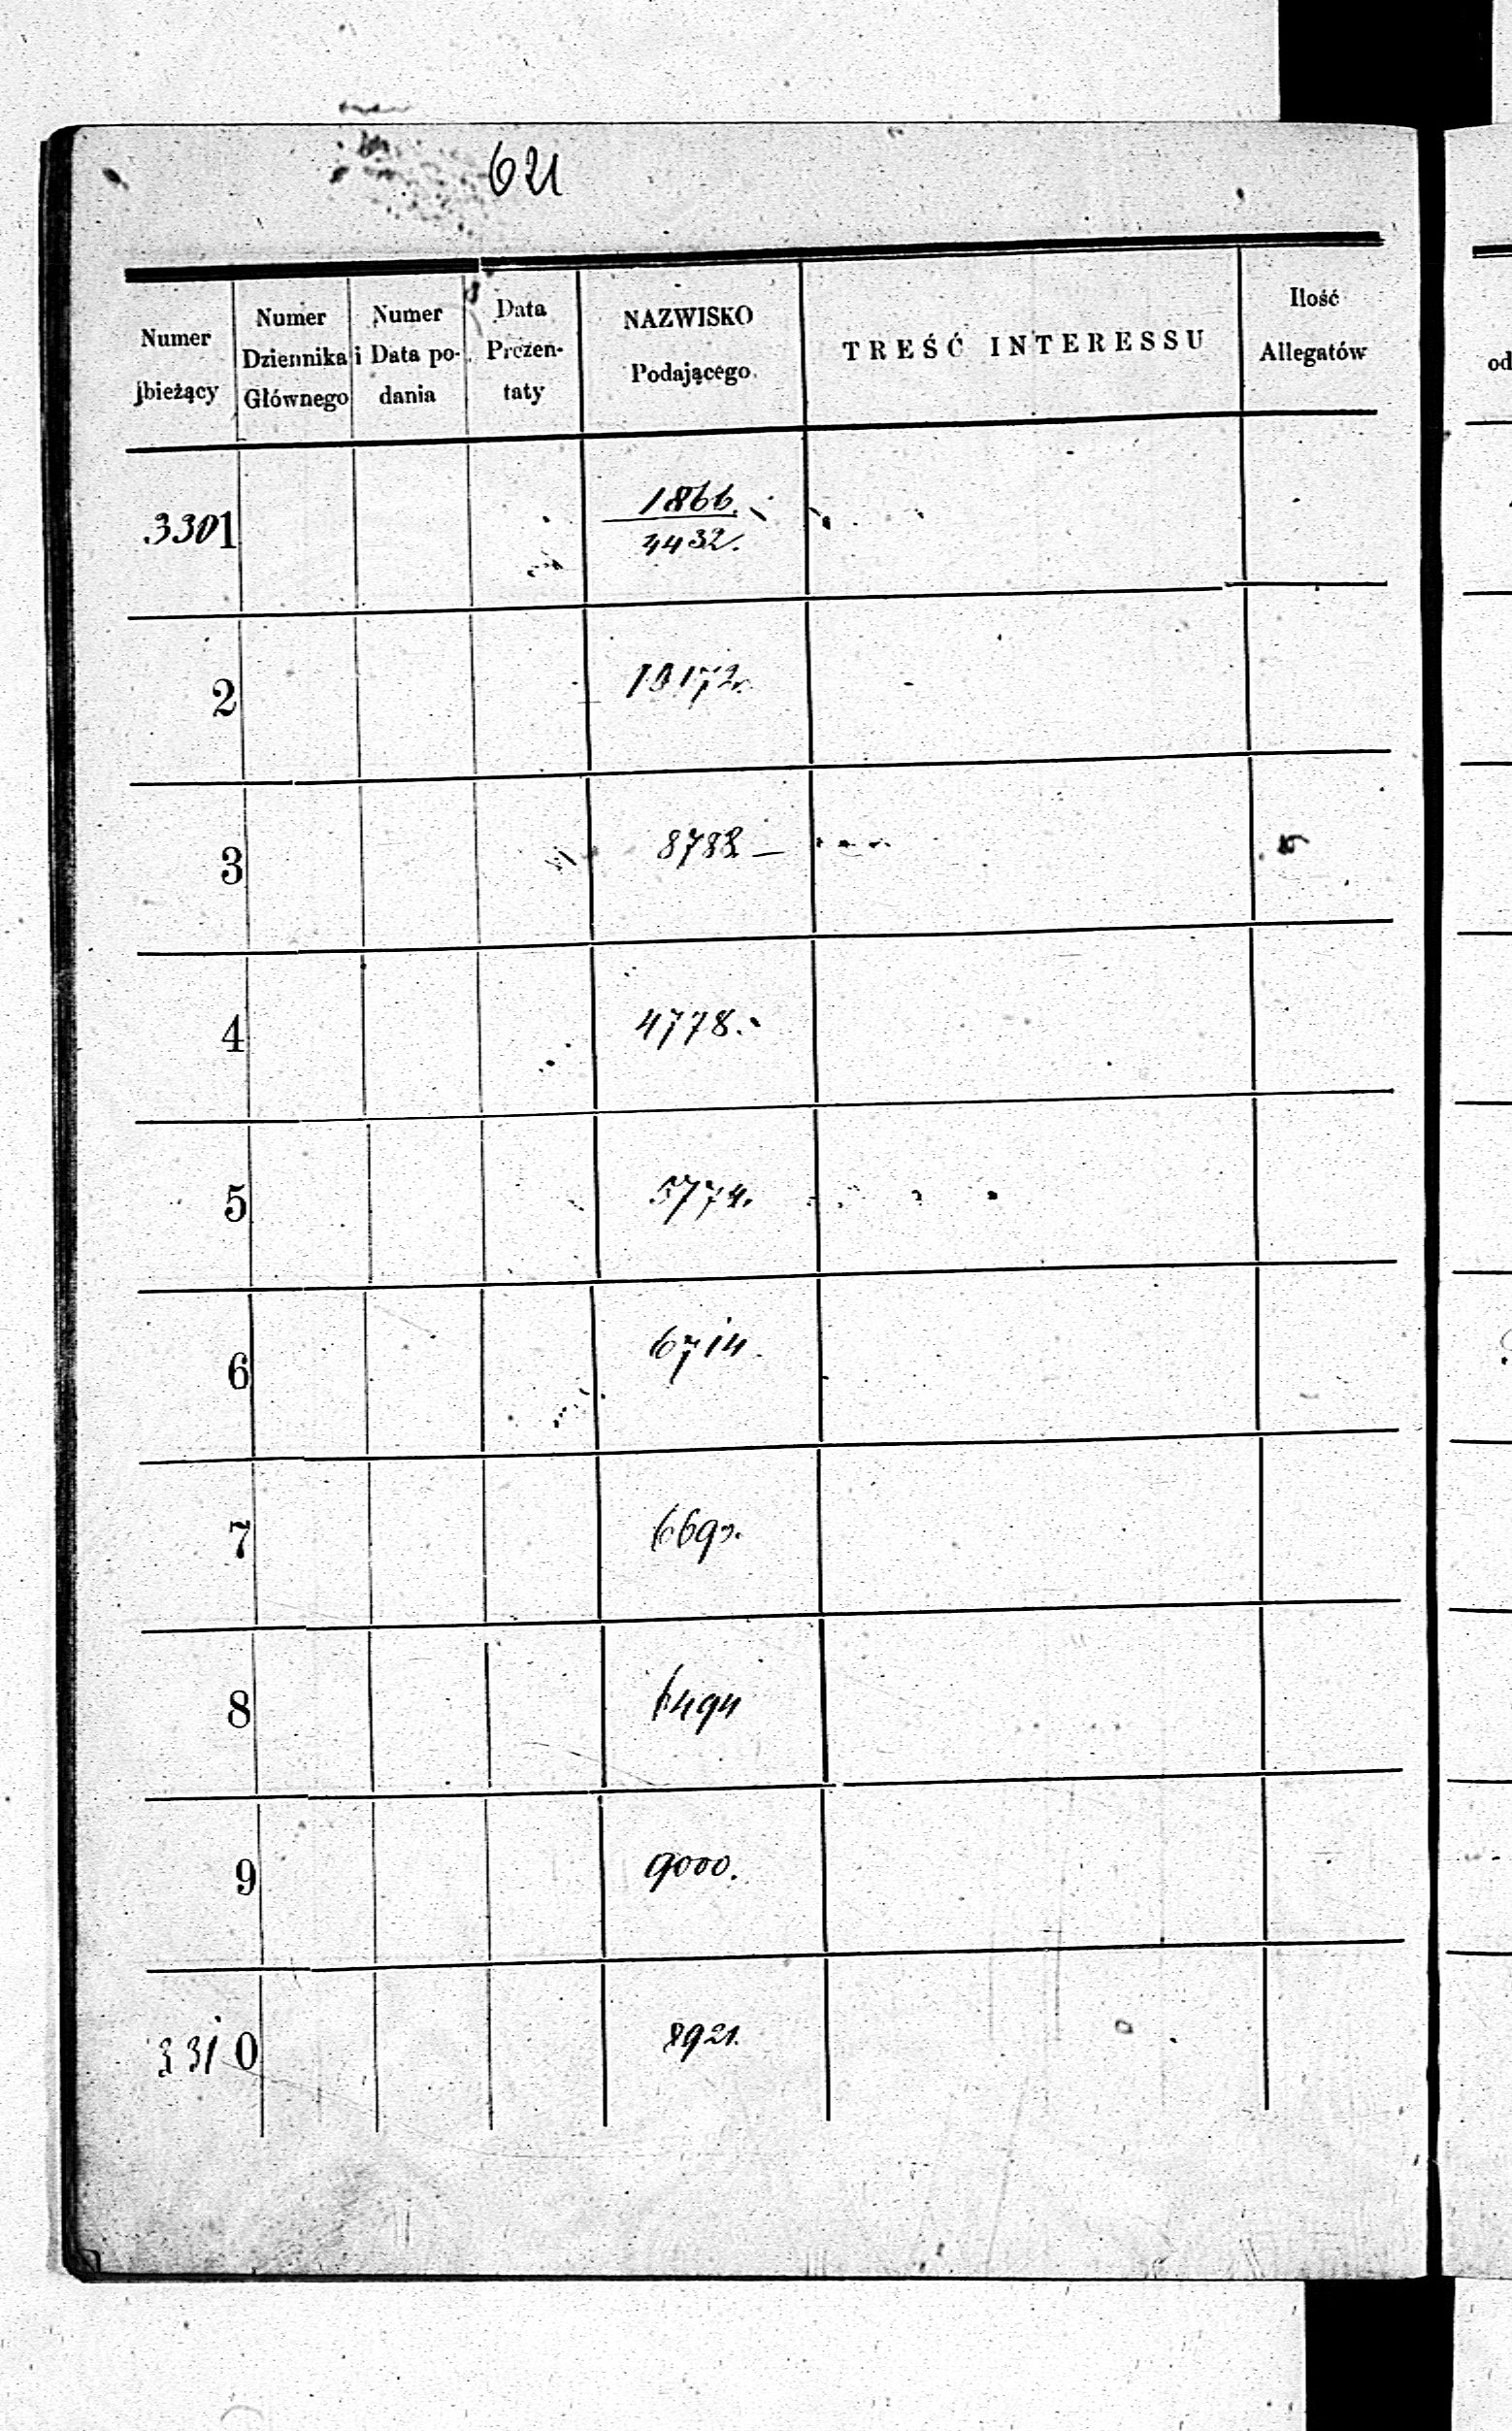 621
Numer
bieżący
Numer
Dziennika
Głównego
Numer
i Data po-
dania
Data
Prezen-
taty
NAZWISKO
Podającego.
TREŚĆ INTERESSU
Ilość
Allegatów
3301
1866.
4432.
2
3
4
4778.
5
5774.
6
6714.
7
8
6494
9
9000.
3310
8921.
od